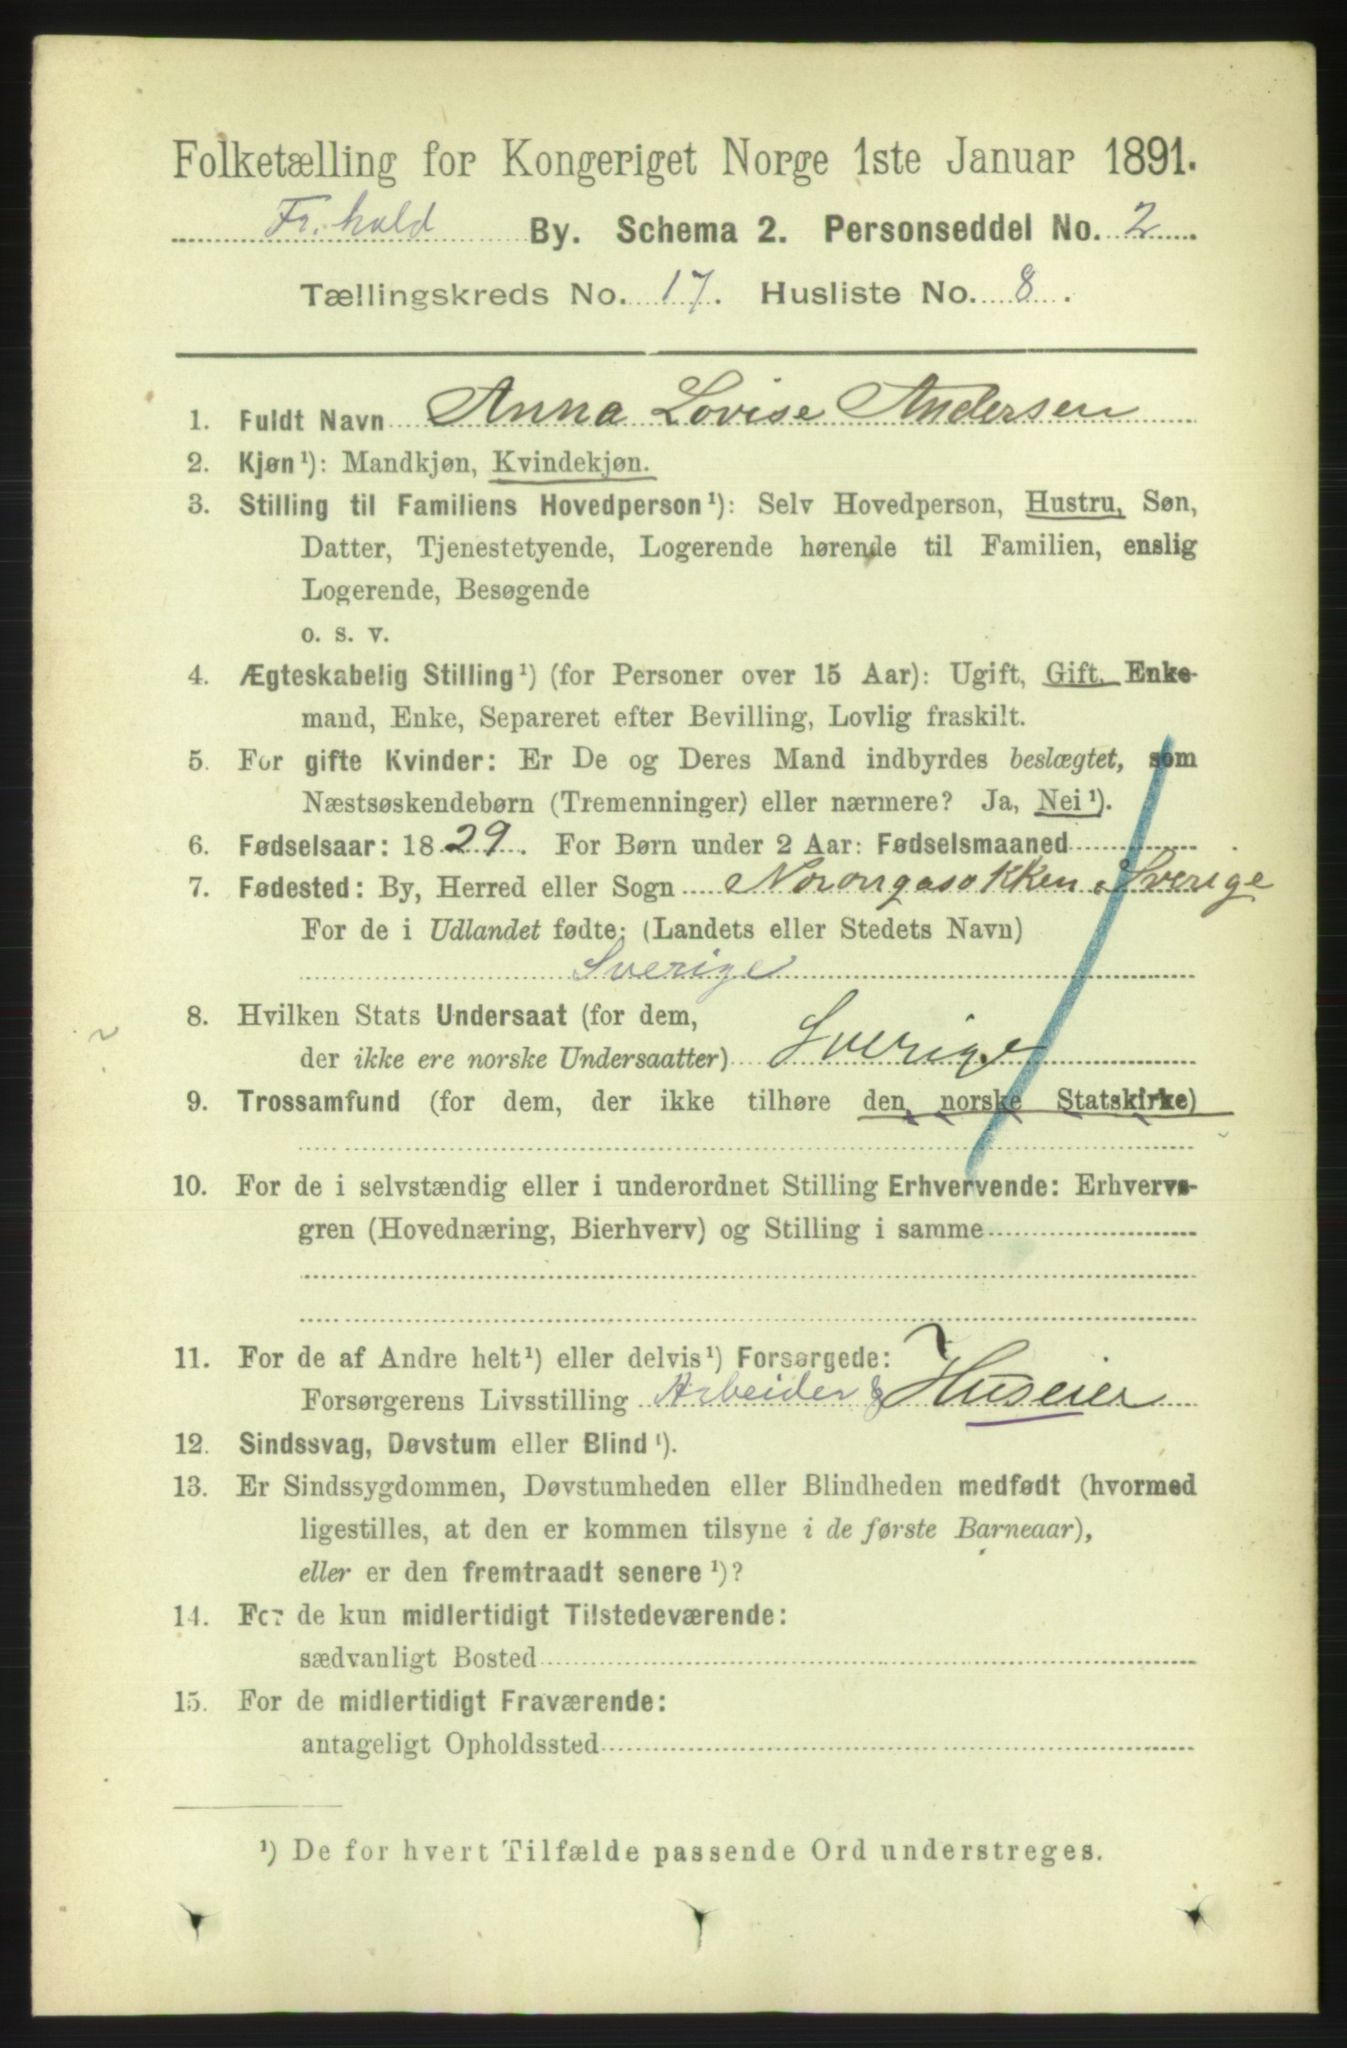 Folketælling for Kongeriget Norge 1ste Januar 1891.
Fr.hald By. Schema 2. Personseddel No. 2
Tællingskreds No. 17. Husliste No. 8.
1. Fuldt Navn Anna Lovise Andersen
2. Kjøn¹): Mandkjøn, Kvindekjøn.
3. Stilling til Familiens Hovedperson¹): Selv Hovedperson, Hustru, Søn,
Datter, Tjenestetyende, Logerende hørende til Familien, enslig
Logerende, Besøgende
o. s. v.
4. Ægteskabelig Stilling¹) (for Personer over 15 Aar): Ugift, Gift, Enke-
mand, Enke, Separeret efter Bevilling, Lovlig fraskilt.
5. For gifte Kvinder: Er De og Deres Mand indbyrdes beslægtet, som
Næstsøskendebørn (Tremenninger) eller nærmere? Ja, Nei¹).
6. Fødselsaar: 1829. For Børn under 2 Aar: Fødselsmaaned
7. Fødested: By, Herred eller Sogn Sverige
For de i Udlandet fødte: (Landets eller Stedets Navn)
Sverige
8. Hvilken Stats Undersaat (for dem,
der ikke ere norske Undersaatter) Sverige
9. Trossamfund (for dem, der ikke tilhøre den norske Statskirke)
10. For de i selvstændig eller i underordnet Stilling Erhvervende: Erhvervs-
gren (Hovednæring, Bierhverv) og Stilling i samme
11. For de af Andre helt¹) eller delvis¹) Forsørgede:
Forsørgerens Livsstilling Arbeider & Huseier
12. Sindssvag, Døvstum eller Blind¹).
13. Er Sindssygdommen, Døvstumheden eller Blindheden medfødt (hvormed
ligestilles, at den er kommen tilsyne i de første Barneaar),
eller er den fremtraadt senere¹)?
14. For de kun midlertidigt Tilstedeværende:
sædvanligt Bosted
15. For de midlertidigt Fraværende:
antageligt Opholdssted
¹) De for hvert Tilfælde passende Ord understreges.